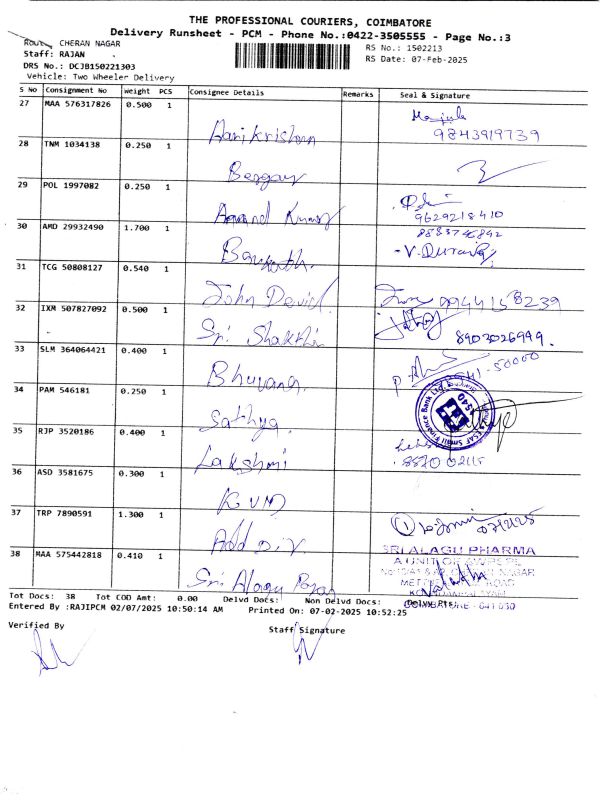 THE PROFESSIONAL COURIERS, COIMBATORE
Delivery Runsheet - PCM - Phone No.:0422-3505555 - Page No.:3
Route CHERAN NAGAR
RS No.: 1502213
Staff: RAJAN
RS Date: 07-Feb-2025
DRS No.: DCJB150221303
Vehicle: Two Wheeler Delivery
S No Consignment No Weight PCS Consignee Details Remarks Seal & Signature
27 MAA 576317826 0.500 1 Harikrishnan
9843919739
28 TNM 1034138 0.250 1
29 POL 1997082 0.250 1 Anand Kumar
9629218410
30 AMD 29932490 1.700 1
- V. Durairaj
31 TCG 50808127 0.540 1 John David
9944158239
32 IXM 507827092 0.500 1 Sri Shakthi
8903026999.
33 SLM 364064421 0.400 1 Bhuvana
34 PAM 546181 0.250 1 Sathya
ESAF Small Finance Bank Ltd
35 RJP 3520186 0.400 1 Lakshmi
36 ASD 3581675 0.300 1 KVM
37 TRP 7890591 1.300 1
38 MAA 575442818 0.410 1 Sri Alagu
SRI ALAGU PHARMA
A UNIT OF
ROAD
COIMBATORE - 641 030
Tot Docs: 38 Tot COD Amt: 0.00 Delvd Docs: Non Delvd Docs: Delvy Pts:
Entered By :RAJIPCM 02/07/2025 10:50:14 AM Printed On: 07-02-2025 10:52:25
Verified By
Staff Signature